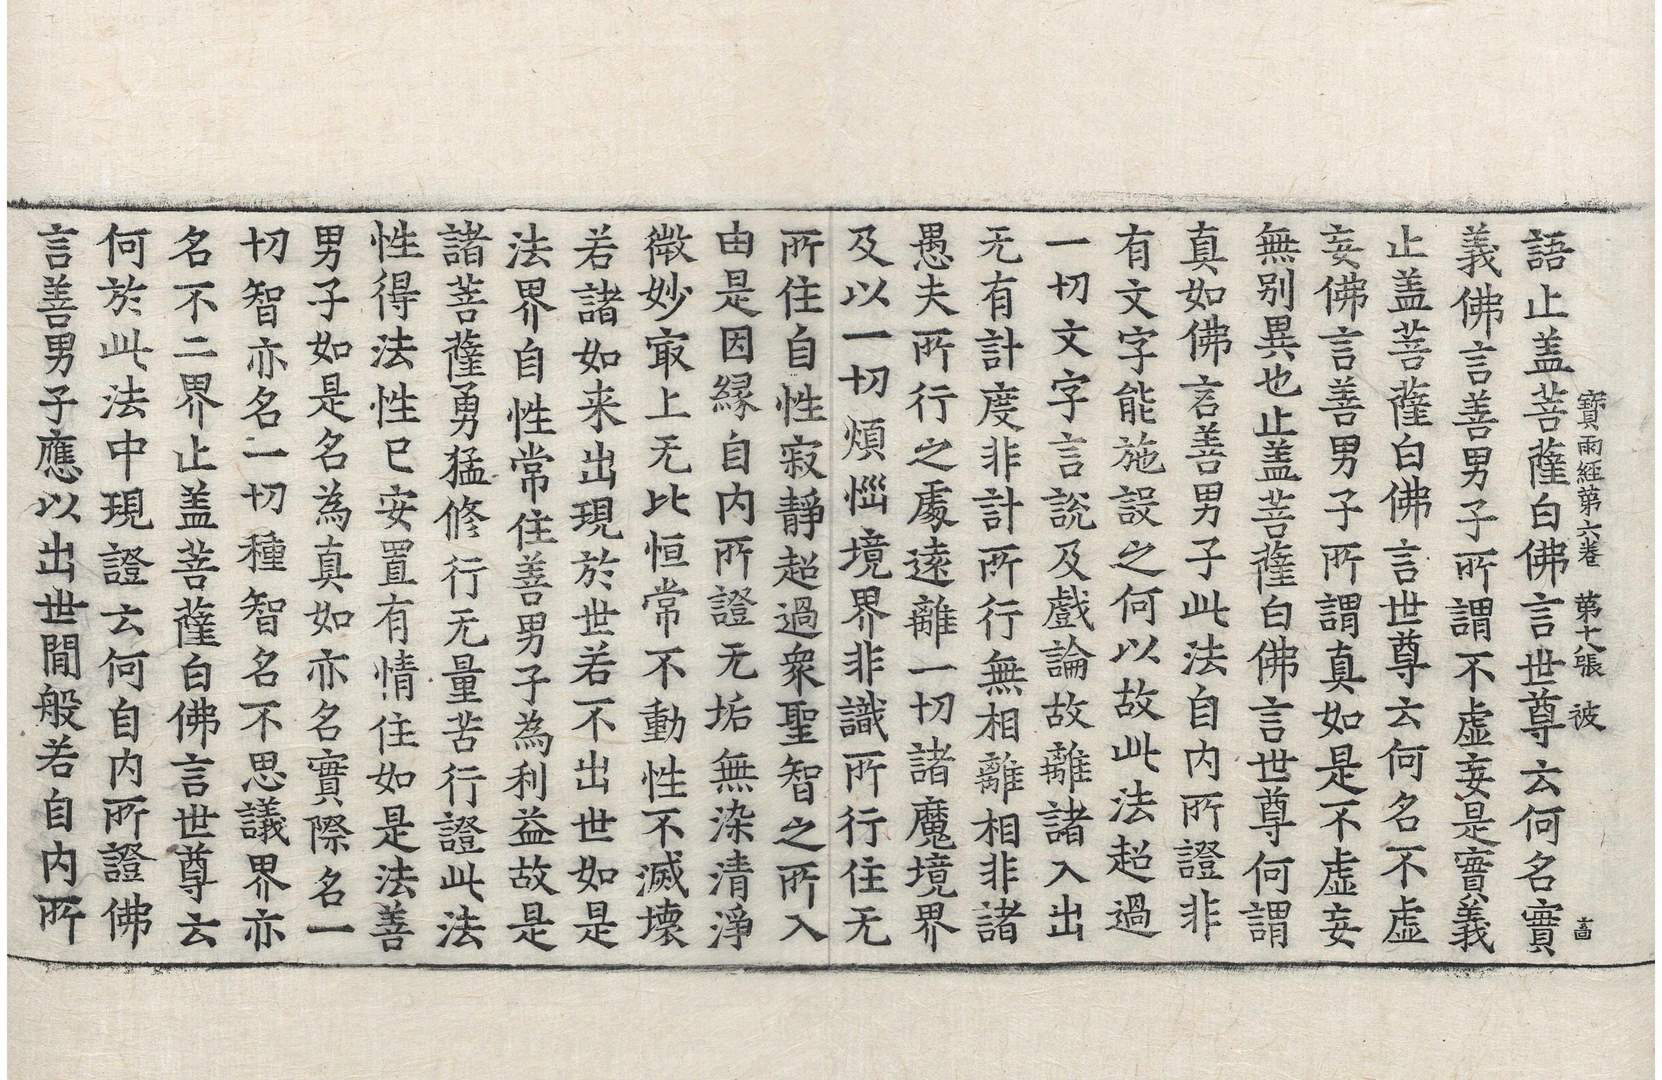 寶雨經第六卷 第十八張 彼 高
語止盖菩薩白佛言世尊云何名實
義佛言善男子所謂不虚妄是實義
止盖菩薩白佛言世尊云何名不虚
妄佛言善男子所謂真如是不虚妄
無别異也止盖菩薩白佛言世尊何謂
真如佛言善男子此法自内所證非
有文字能施設之何以故此法超過
一切文字言說及戲論故離諸入出
无有計度非計所行無相離相非諸
愚夫所行之處遠離一切諸魔境界
及以一切煩惱境界非識所行住无
所住自性寂静超過衆聖智之所入
由是因縁自内所證无垢無染清淨
微妙㝡上无比恒常不動性不滅壞
若諸如来出現於世若不出世如是
法界自性常住善男子為利益故是
諸菩薩勇猛修行无量苦行證此法
性得法性已安置有情住如是法善
男子如是名為真如亦名實際名一
切智亦名一切種智名不思議界亦
名不二界止盖菩薩白佛言世尊云
何於此法中現證云何自内所證佛
言善男子應以出世間般若自内所